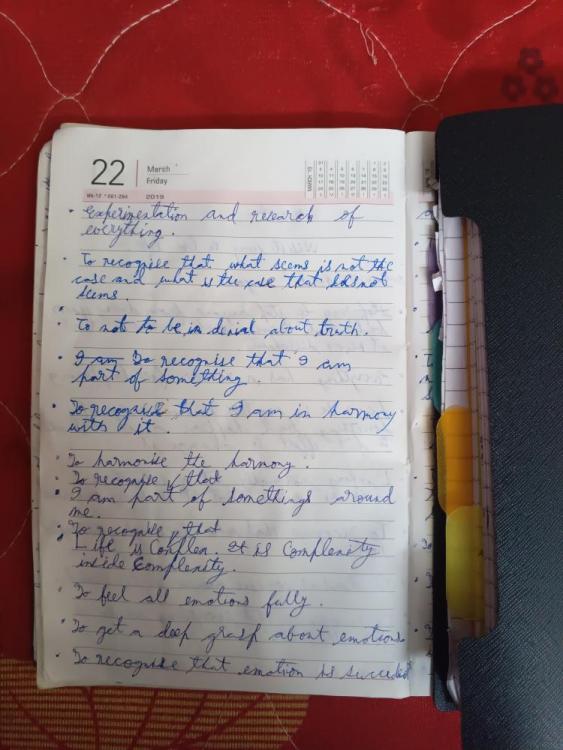 22
March
Friday
2019
• Experimentation and research of
everything.
• To recognise that what seems is not the
case and what is the case that does not
seems.
• To not to be in denial about truth.
• I am To recognise that I am
part of something
• To recognise that I am in harmony
with it.
• To harmonise the harmony.
• To recognise that
• I am part of somethings around
me.
• To recognise that
Life is Complex. It is Complexity
inside Complexity.
• To feel all emotions fully.
• To get a deep grasp about emotions
• To recognise that emotion is